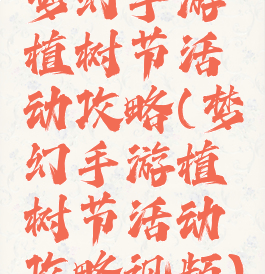 梦幻手游
植树节活
动攻略(梦
幻手游植
树节活动
攻略视频)